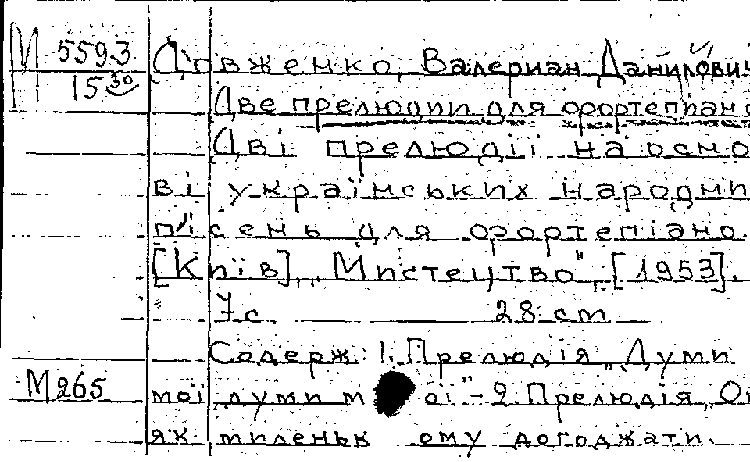 М 5593 Довженко, Валериан Данилович
15 30 Две прелюдии для фортепиано
Дві прелюдії на осно
ві українських народни
пісень для фортепіано.
[Київ], „Мистецтво", [1953].
7 с. 28 cm
Содерж: 1. Прелюдія „Думи
М265 мої думи мої" - 2. Прелюдія,
як миленьк ому догоджати.